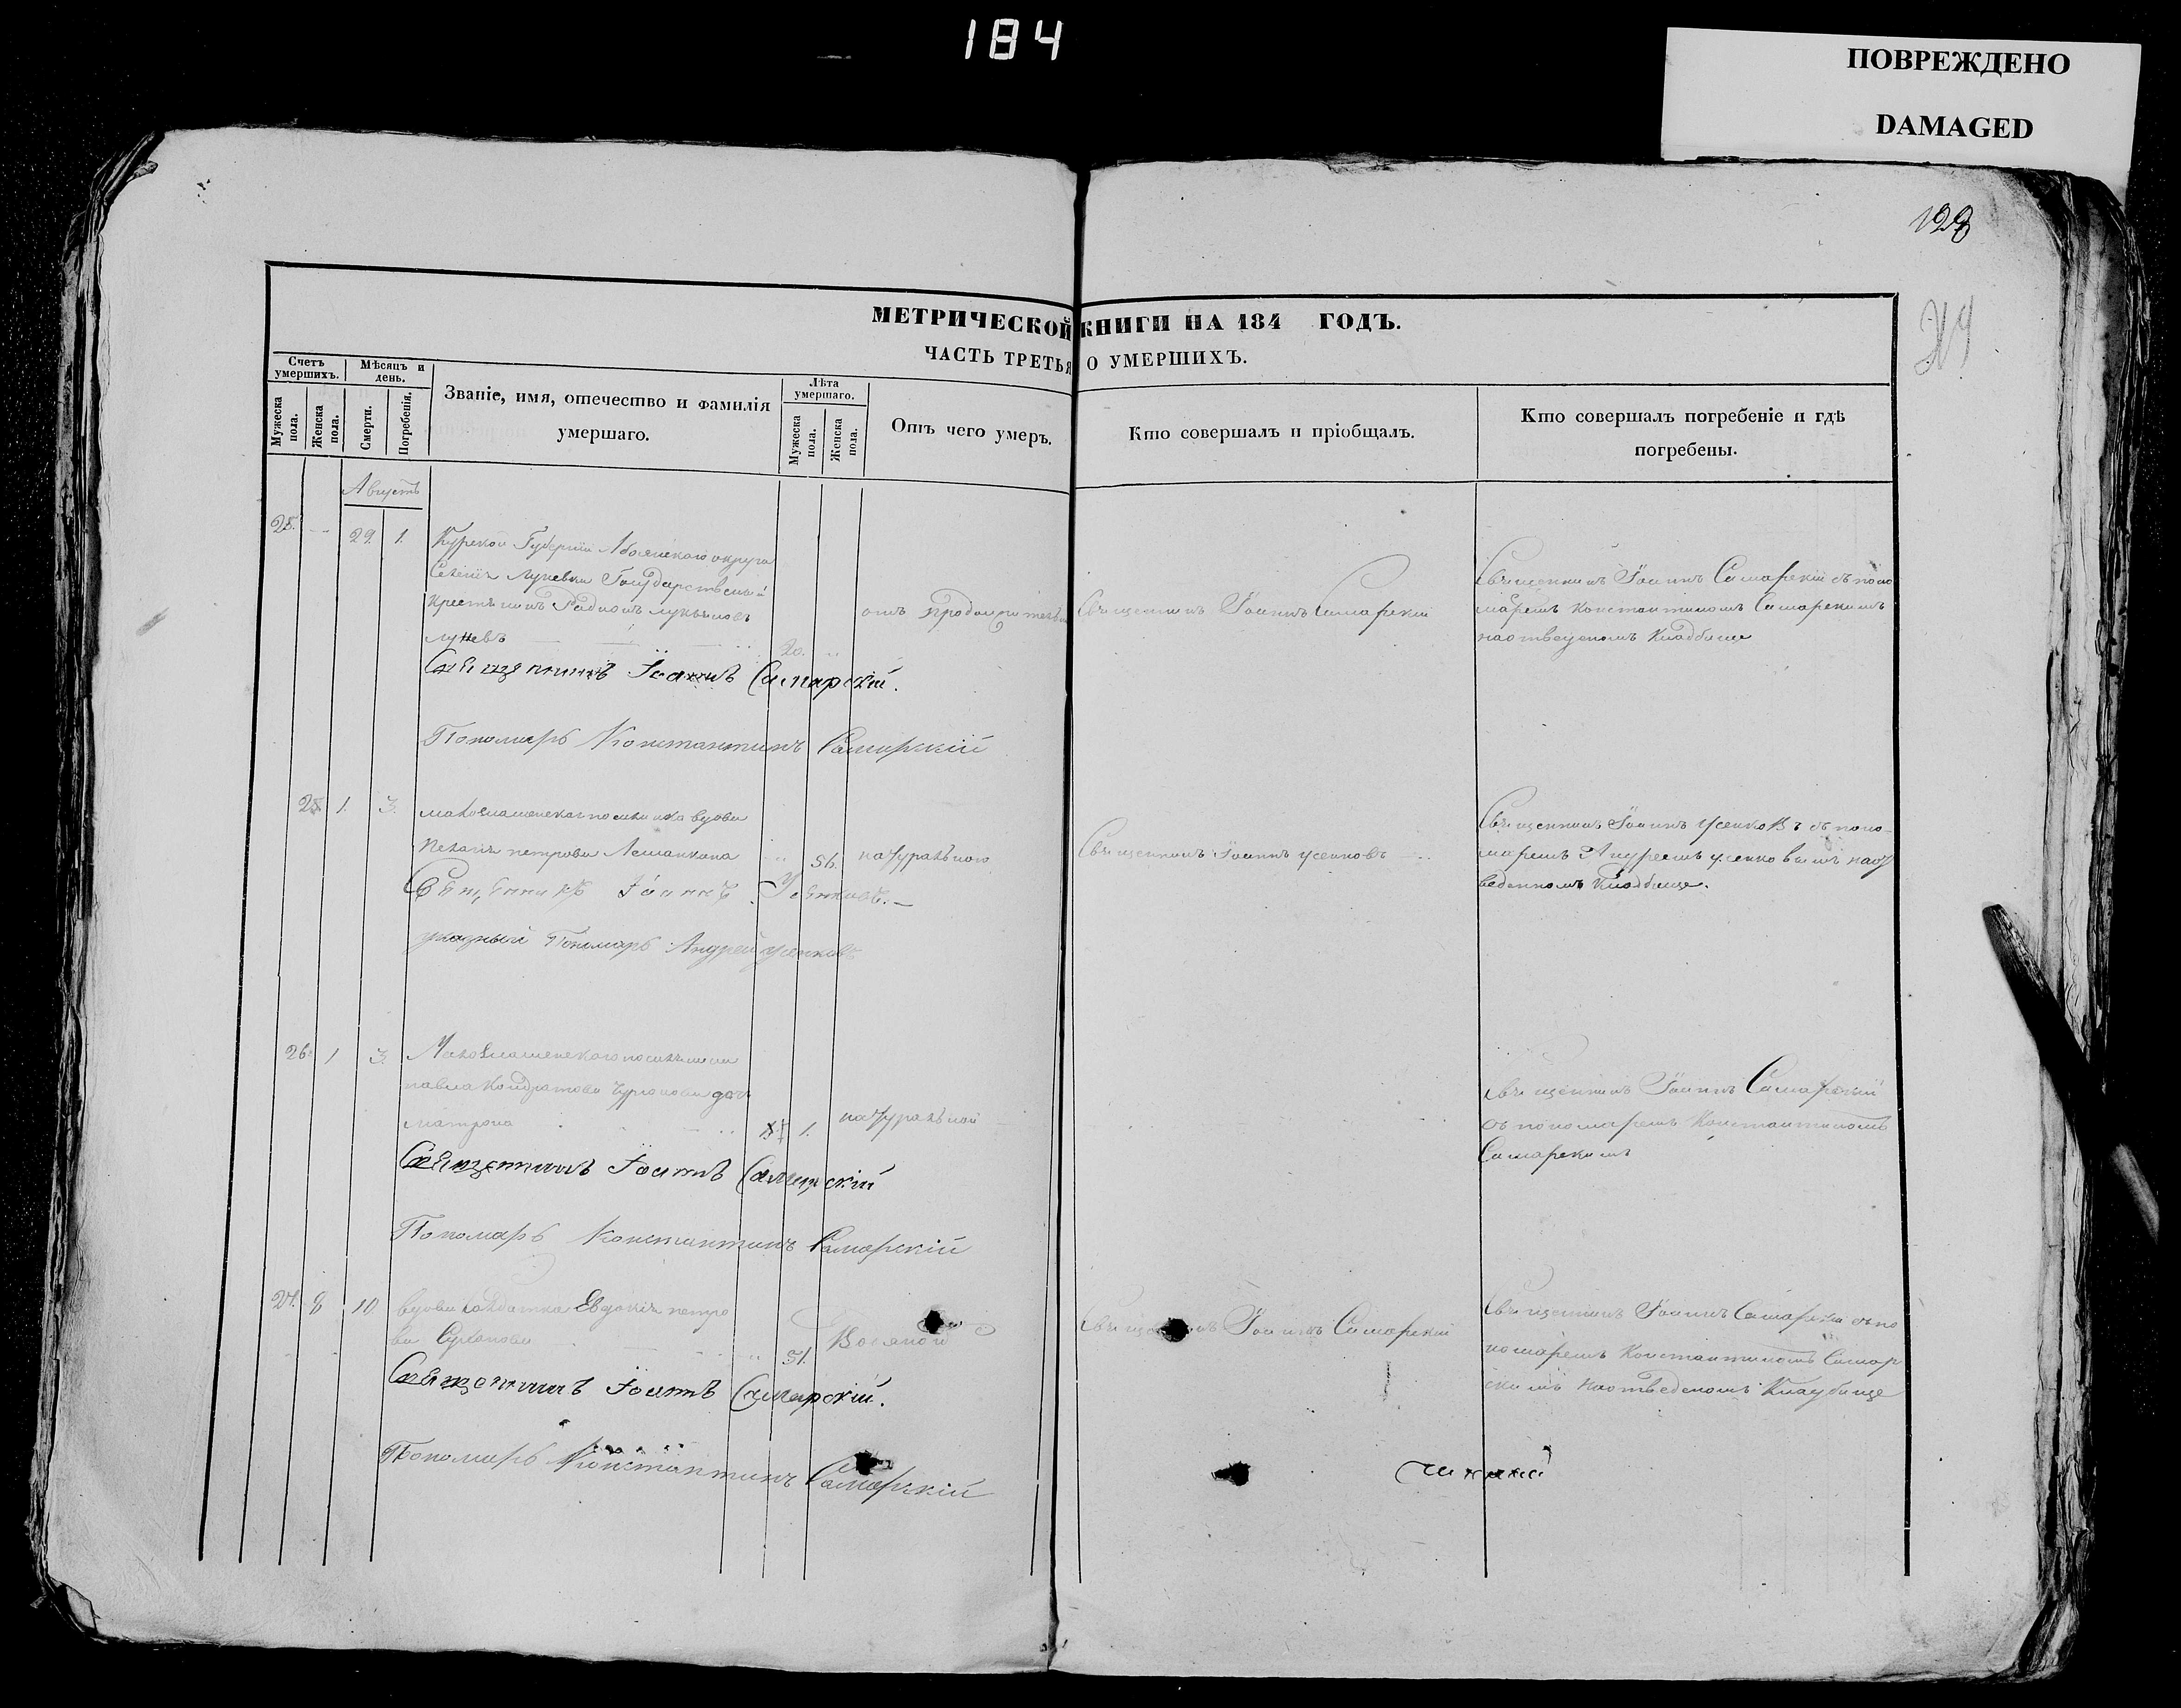 184
ПОВРЕЖДЕНО
DAMAGED
МЕТРИЧЕСКОЙ КНИГИ НА 184 ГОДЪ.
ЧАСТЬ ТРЕТЬЯ О УМЕРШИХЪ.
Счетъ умершихъ.
Мѣсяцъ и день.
Званіе, имя, отечество и фамилія умершаго.
Лѣта умершаго.
Отъ чего умеръ.
Кто совершалъ и пріобщалъ.
Кто совершалъ погребеніе и гдѣ погребены.
Мужеска пола.
Женска пола.
Смерти.
Погребенія.
Мужеска пола.
Женска пола.
Августъ
29. 1.
Курской Губерніи Абоянскаго округа
Селенія Луневки Государственный
Крестьянинъ Радионъ Лукьяновъ
луневъ 20.
отъ
Священникъ Іоаннъ Самарскій
Священникъ Іоаннъ Самарскій съ поно
маремъ Константиномъ Самарскимъ
на отведеномъ Кладбище
Священникъ Іоаннъ Самарскій.
Пономарь Константинъ Самарскій
1. 3.
вдова
петрова 56. натурального
Священникъ Іоаннъ усенковъ
Священникъ Іоаннъ усенковъ съ поно-
маремъ Андреемъ усенковымъ на от
веденномъ Кладбище.
Священникъ Іоаннъ Усенковъ.
указный Пономарь Андрей усенковъ
26. 1 3.
павла Кондратова дочь
матрона 1. натуральной
священникъ Іоаннъ Самарскій
съ пономаремъ Константиномъ
Самарскимъ
Священникъ Іоаннъ Самарскій
Пономарь Константинъ Самарскій
10
вдова солдатка Евдокія петро
ва 51. Водяной
Священникъ Іоаннъ Самарскій
Священникъ Іоаннъ Самарскій съ по
номаремъ Константиномъ Самар
скимъ на отведеномъ Кладбище
Священникъ Іоаннъ Самарскій.
Пономарь Константинъ Самарскій